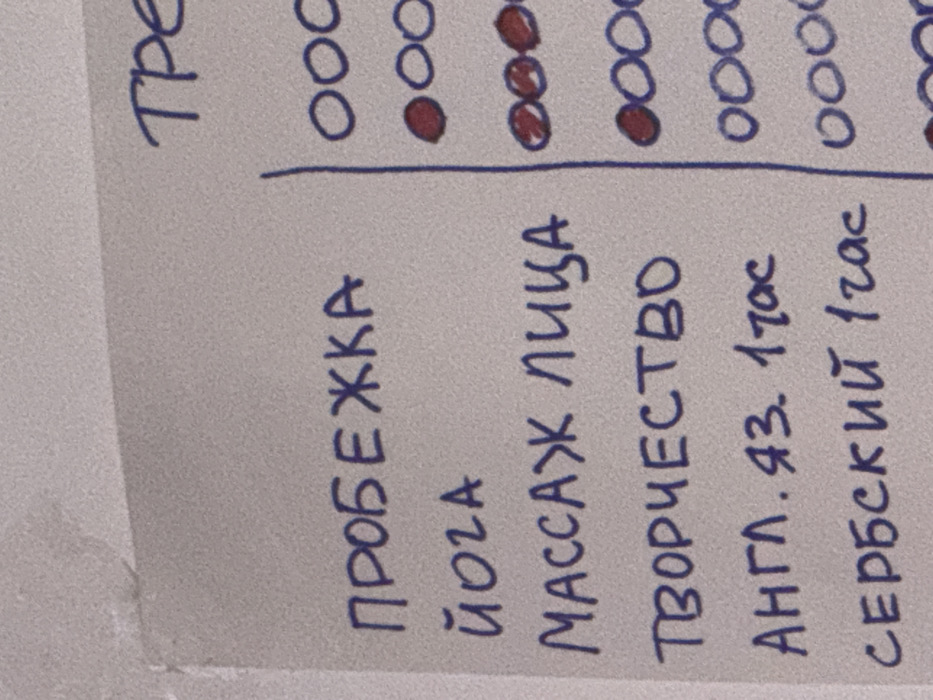 ПРОБЕЖКА
ЙОГА
МАССАЖ ЛИЦА
ТВОРЧЕСТВО
АНГЛ. ЯЗ. 1 час
СЕРБСКИЙ 1 час